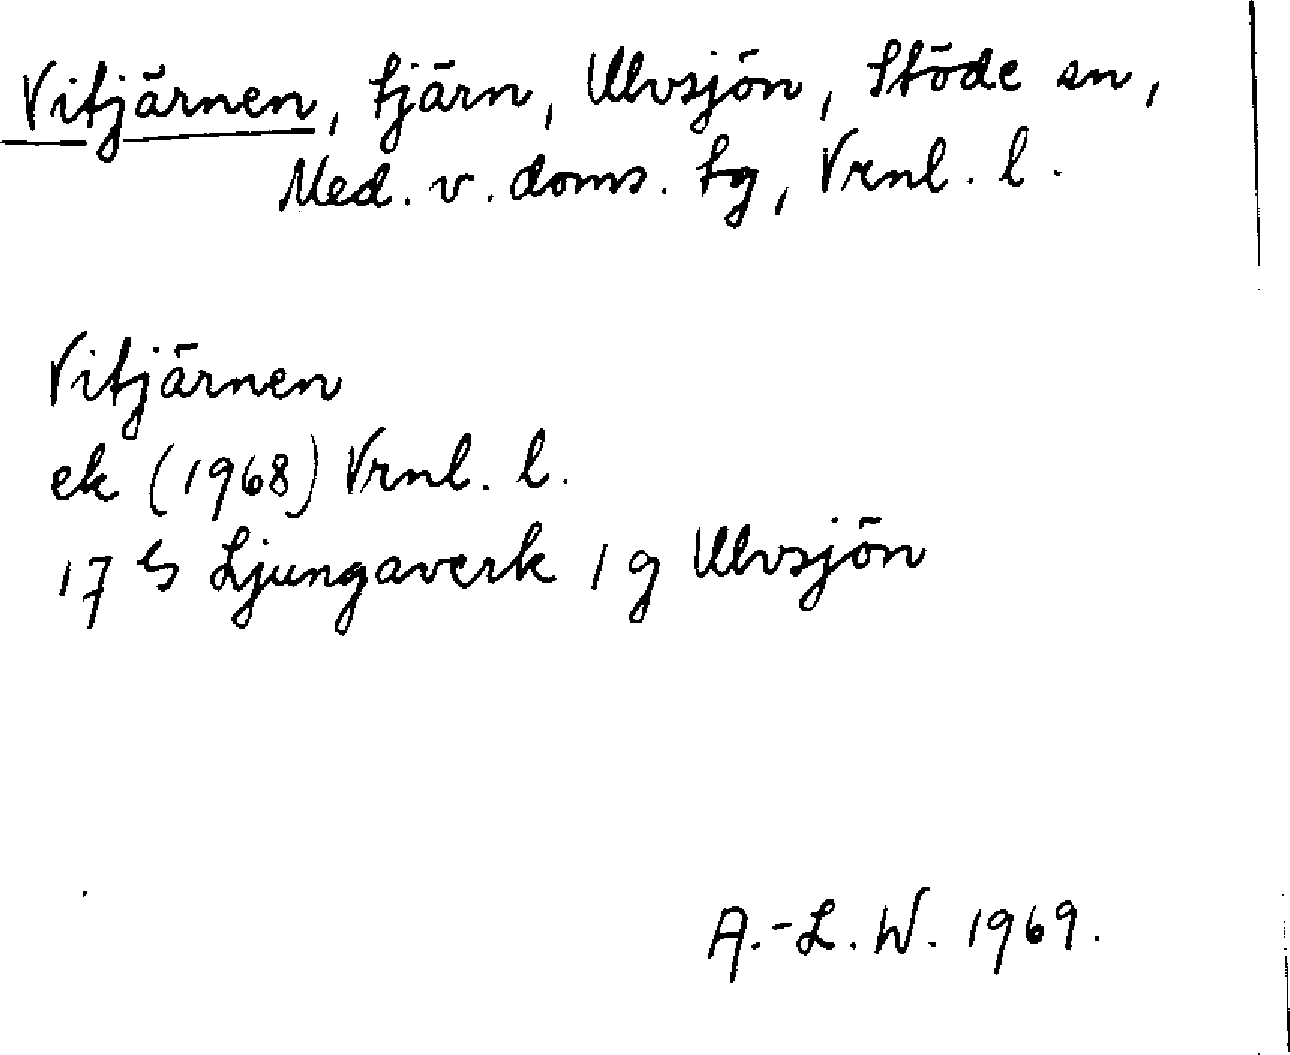 Vitjärnen, tjärn, Ulvsjön, Stöde sn,
Med. v. doms. tg, Vrnl. l.
Vitjärnen
ek (1968) Vrnl. l.
17 G Ljungaverk 1 g Ulvsjön
A.-L. W. 1969.